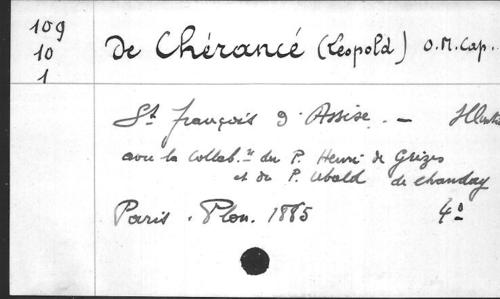 109
10
1
De Chérancé (Léopold) O.M.Cap.
St françois d'Assise. –
avec la collab.n du P. Henri de Grèzes
et du P. Ubald de Chanday
Paris. Plon. 1885
4°